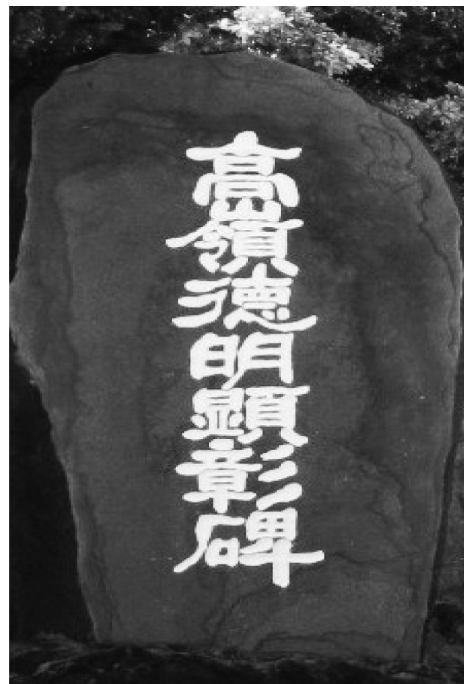 高嶺德明顕彰碑